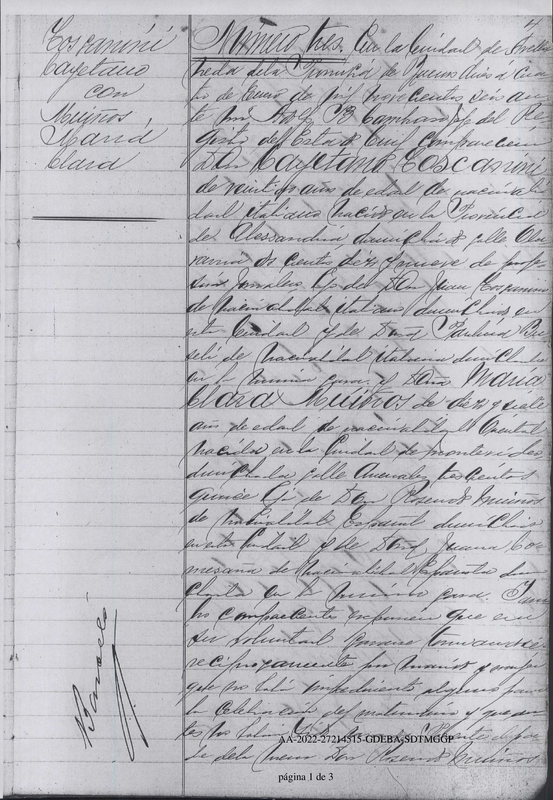 4
Toscanini
Cayetano
con
Muiños
Maria
Clara
Número tres. En la Ciudad de Avella
neda de la Provincia de Buenos Aires á cua
tro de Enero de mil novecientos seis an
te mi
gistro del Estado Civil, comparecen
Don Cayetano Toscanini
de veintidos años de edad de nacionali
dad italiano nacido en la Provincia
de Alessandria domiciliado calle Ola
varria doscientos diez y nueve de profe
sión jornalero hijo de Don Juan Toscanini
de nacionalidad italiano domiciliado en
esta Ciudad y de Doña Paulina
de nacionalidad italiana domiciliada
en la misma casa. y Doña Maria
Clara Muiños de diez y siete
años de edad de nacionalidad Oriental
nacida en la Ciudad de Montevideo
domiciliada calle trescientos
quince hija de Don Rosendo Muiños
de nacionalidad Español domiciliado
en esta Ciudad y de Doña Juana Co
mesaña de nacionalidad Española domi
ciliada en la misma casa. Am
bos comparecientes exponen que era
su voluntad tomarse
reciprocamente por marido y mujer
que no había impedimento alguno para
la celebración del matrimonio y que an
de la Don Rosendo Muiños
AA-2022-27214515-GDEBA-SDTMGGP
página 1 de 3